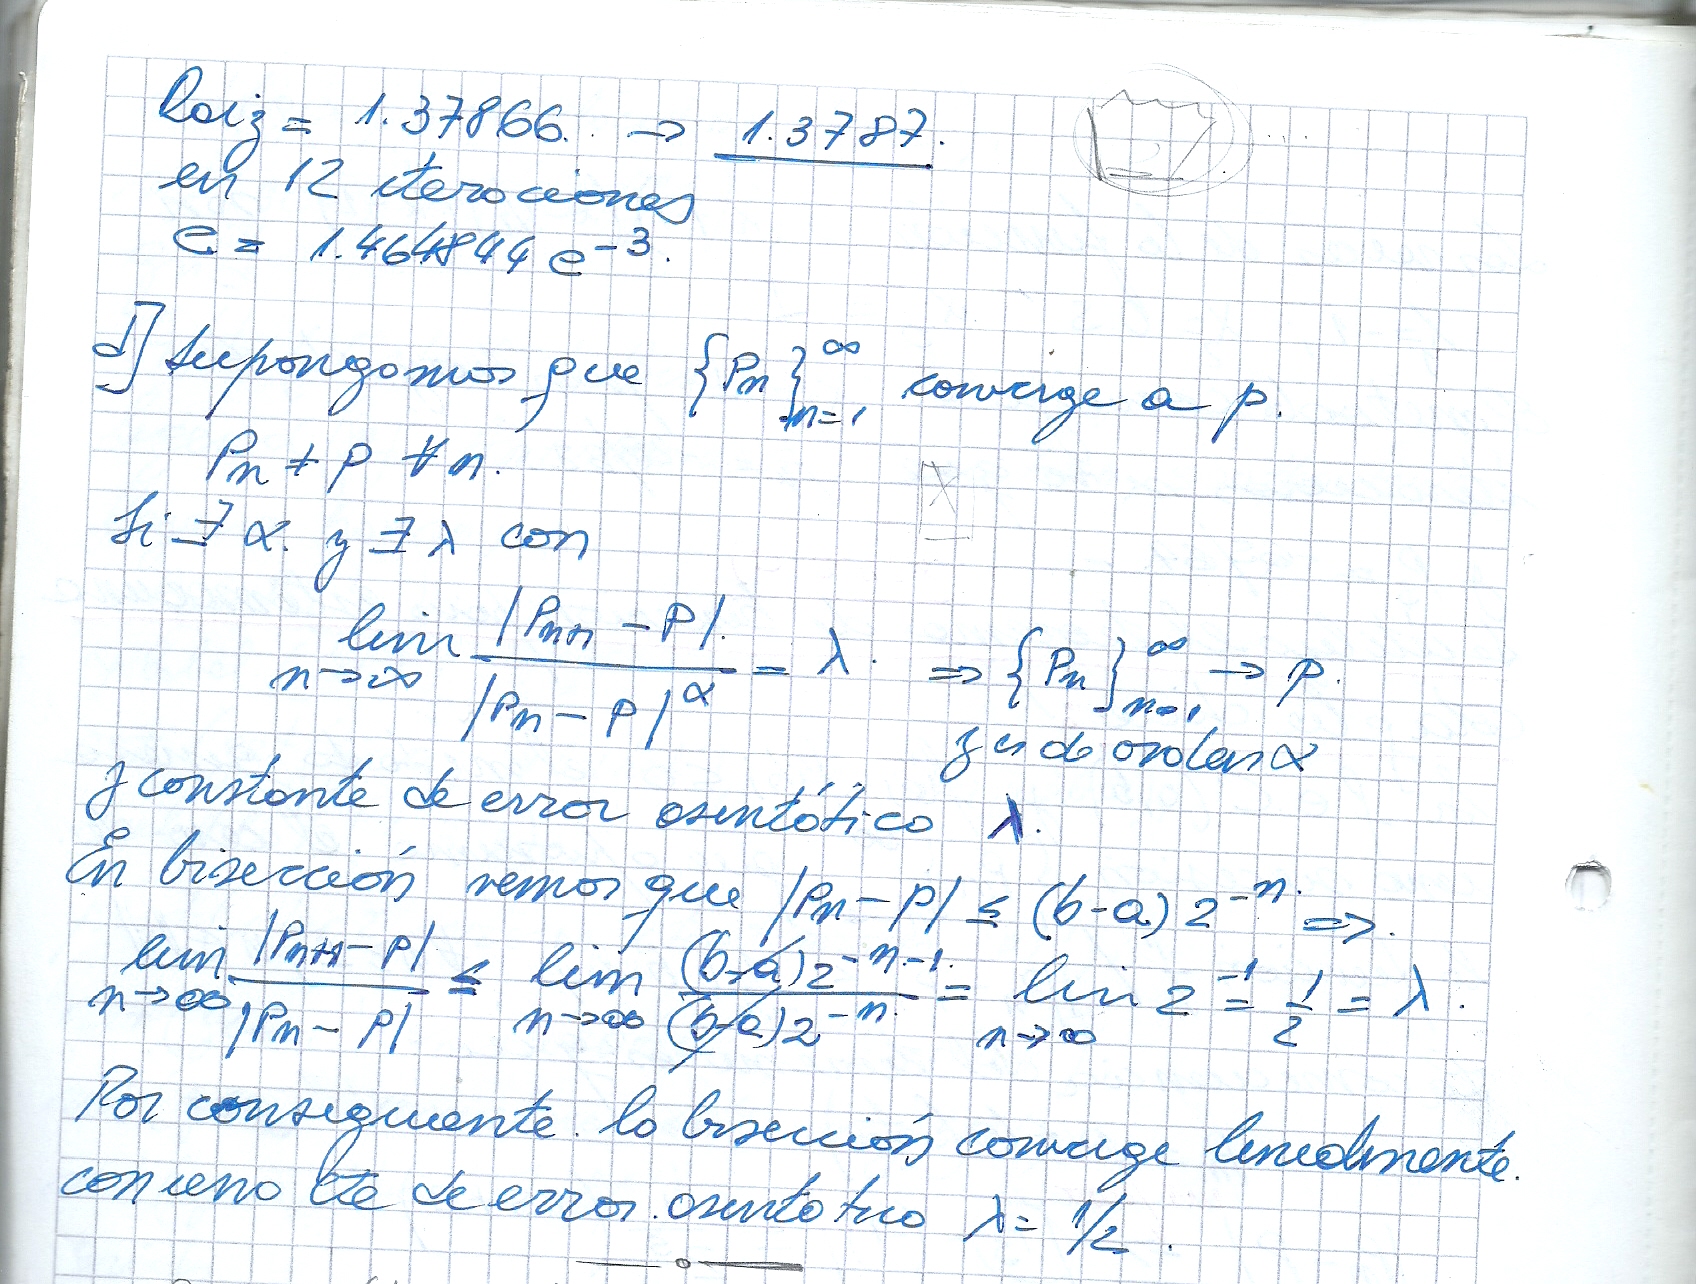 Raiz = 1.37866. → 1.3787.
en 12 iteraciones
e = 1.464844 e^-3.
d] Supongamos que {Pn}_{n=1}^∞ converge a p.
Pn ≠ p ∀n.
Si ∃ α. y ∃ λ con
lim_{n→∞} |Pn+1 - P|. / |Pn - P|^α = λ. ⇒ {Pn}_{n=1}^∞ → p.
y es de orden α
y constante de error asintótico λ.
En bisección vemos que |Pn - P| ≤ (b-a) 2^-n. ⇒.
lim_{n→∞} |Pn+1 - P| / |Pn - P| ≤ lim_{n→∞} (b-a)2^-n-1. / (b-a)2^-n. = lim_{n→∞} 2^-1 = 1/2 = λ.
Por consiguiente. la bisección converge linealmente.
con una Cte de error. asintotico λ = 1/2.